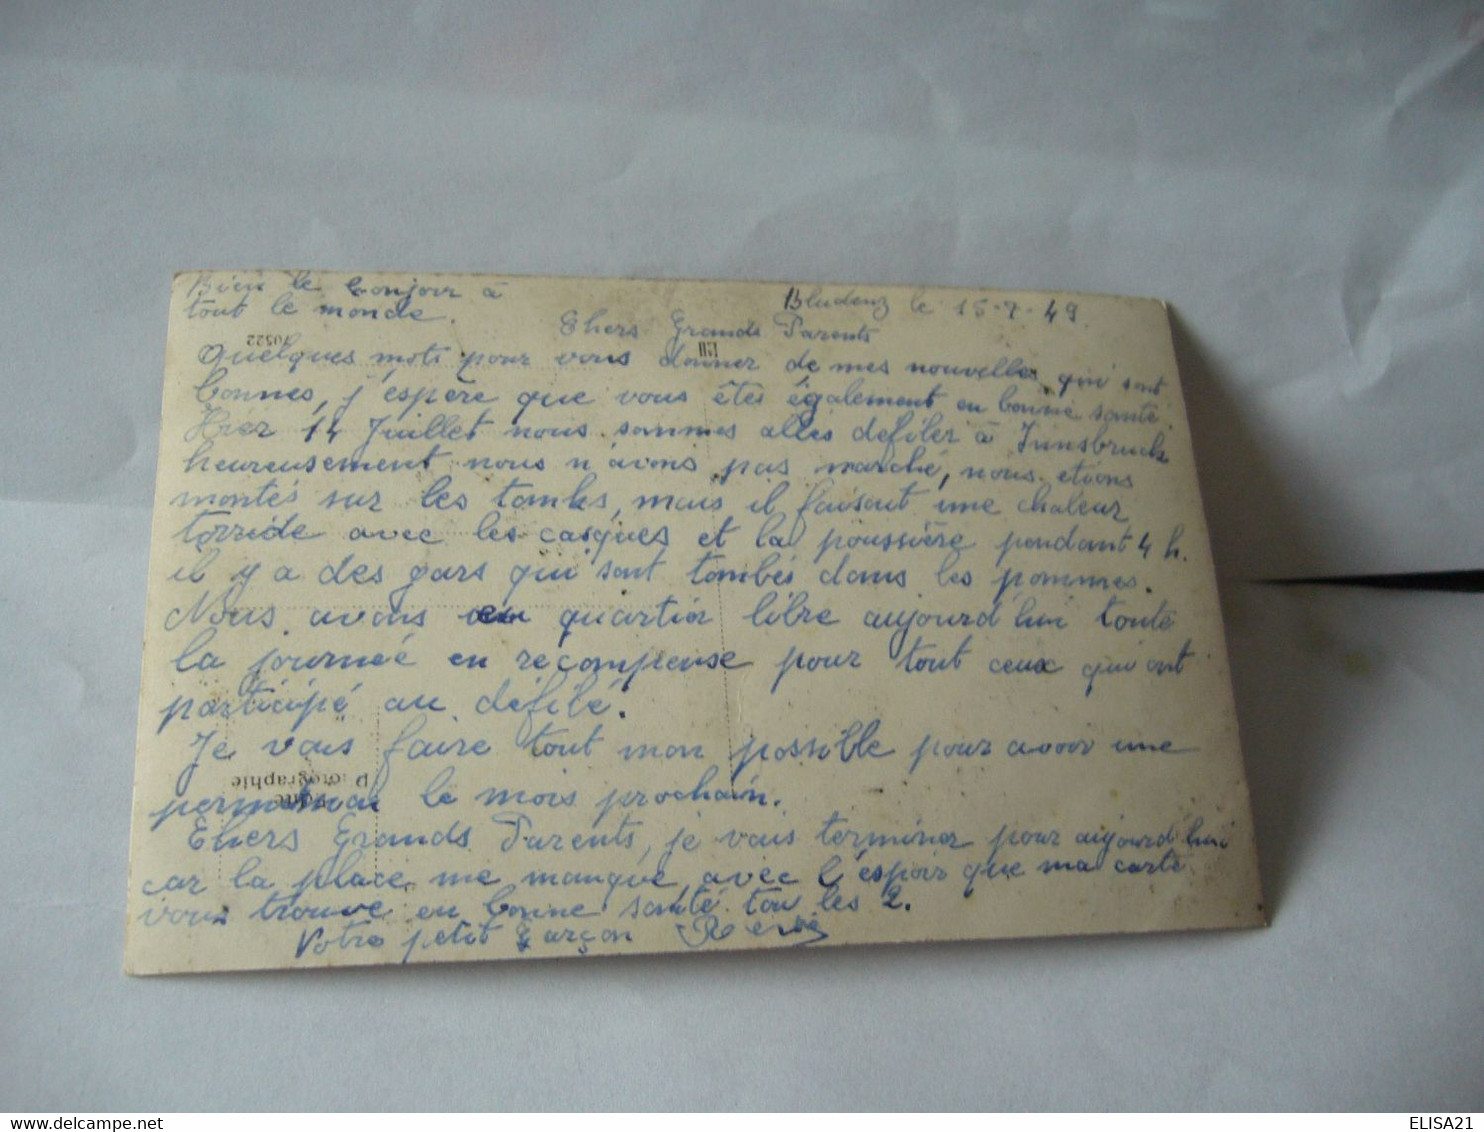 Bien le bonjour à
tout le monde.
Bludenz le 15-7-49
Chers Grands Parents
70522
Quelques mots pour vous donner de mes nouvelles qui sont
bonnes, j'espère que vous êtes également en bonne santé.
Hier 14 Juillet nous sommes allés defiler à Innsbruck
heureusement nous n'avons pas marché, nous etions
montés sur les tanks, mais il faisait une chaleur
torride avec les casques et la poussière pendant 4 h.
il y a des gars qui sont tombés dans les pommes.
Nous avons eu quartier libre aujourd'hui toute
la journée en recompense pour tout ceux qui ont
participé au défilé.
Je vais faire tout mon possible pour avoir une
le mois prochain.
Chers Grands Parents, je vais terminer pour aujourd'hui
car la place me manque, avec l'espoir que ma carte
vous trouve en bonne santé tou les 2.
Votre petit garçon
ELISA21